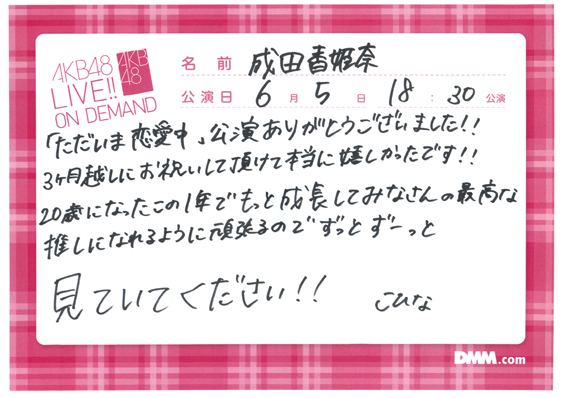 AKB48
LIVE!!
ON DEMAND
AKB
48
名前 成田香姫奈
公演日 6月5日 18:30公演
「ただいま恋愛中」公演ありがとうございました!!
3ヶ月越しにお祝いして頂けて本当に嬉しかったです!!
20歳になったこの1年でもっと成長してみなさんの最高な
推しになれるように頑張るのでずっとずーっと
見ていてください!!
こひな
DMM.com